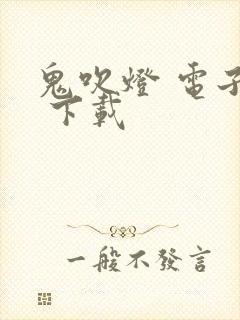 鬼吹燈 電子
下載
一般不發言